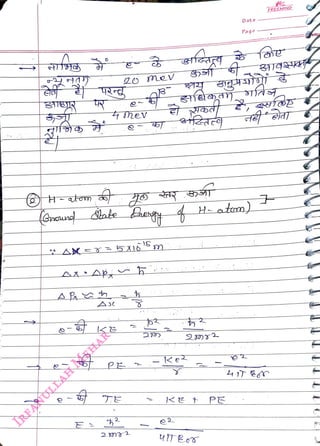 Date
Page
→ नाभिक में e- के अस्तित्व के लिए
न्यूनतम 20 MeV ऊर्जा की आवश्यकता
होती है। परन्तु β- क्षय अनुप्रयोगों के
आधार पर e- की अधिकतम गतिज
ऊर्जा 4 MeV हो सकती है, इसलिए
नाभिक में e- का अस्तित्व नहीं होता
है।
② H-atom की मूल स्तर ऊर्जा
(Ground State Energy of H-atom) :-
∵ Δx = r = 5×10¹⁵ m
Δx · Δpx ~ ħ
Δpx ≈ ħ/Δx = ħ/r
→ e- की KE = p²/2m = ħ²/2mr²
→ e- की PE = -Ke²/r = - e²/4π ε₀r
→ e- की TE = KE + PE
E = ħ²/2mr² - e²/4π ε₀r
IRFANULLAH MSHAR